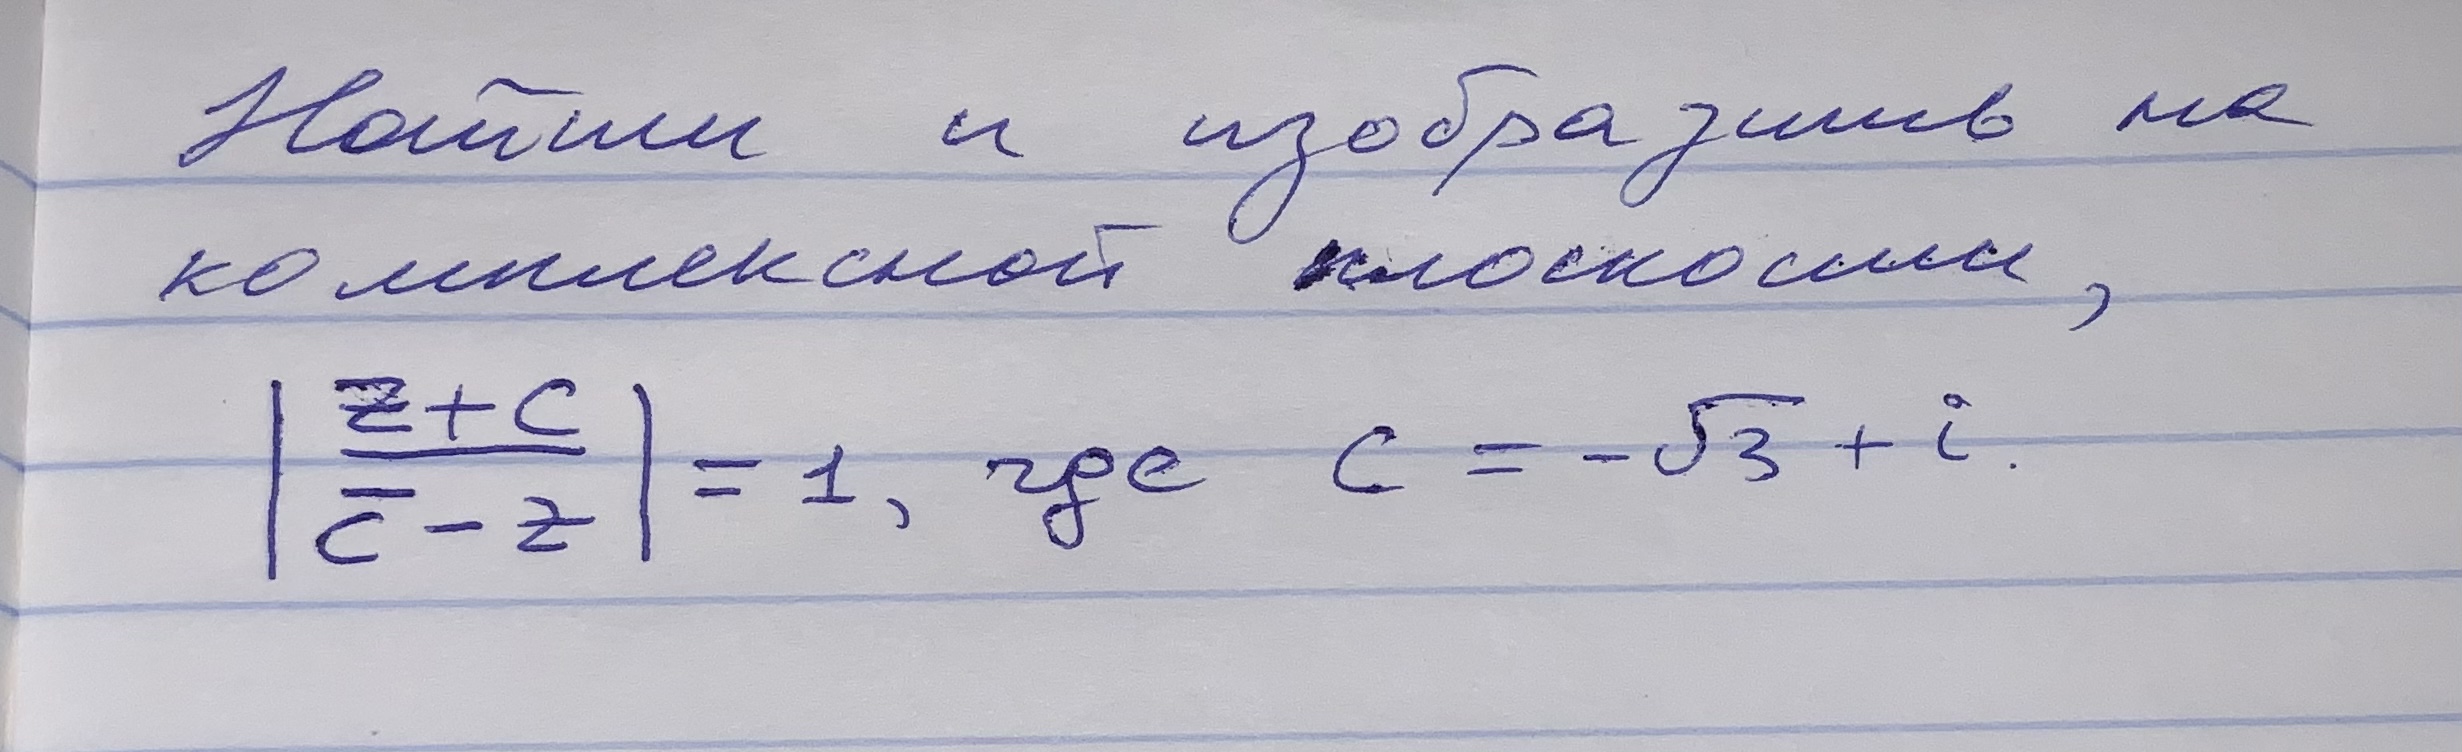 Найти и изобразить на
комплексной плоскости,
|(z+c)/(c̅-z)| = 1, где c = -√3 + i.